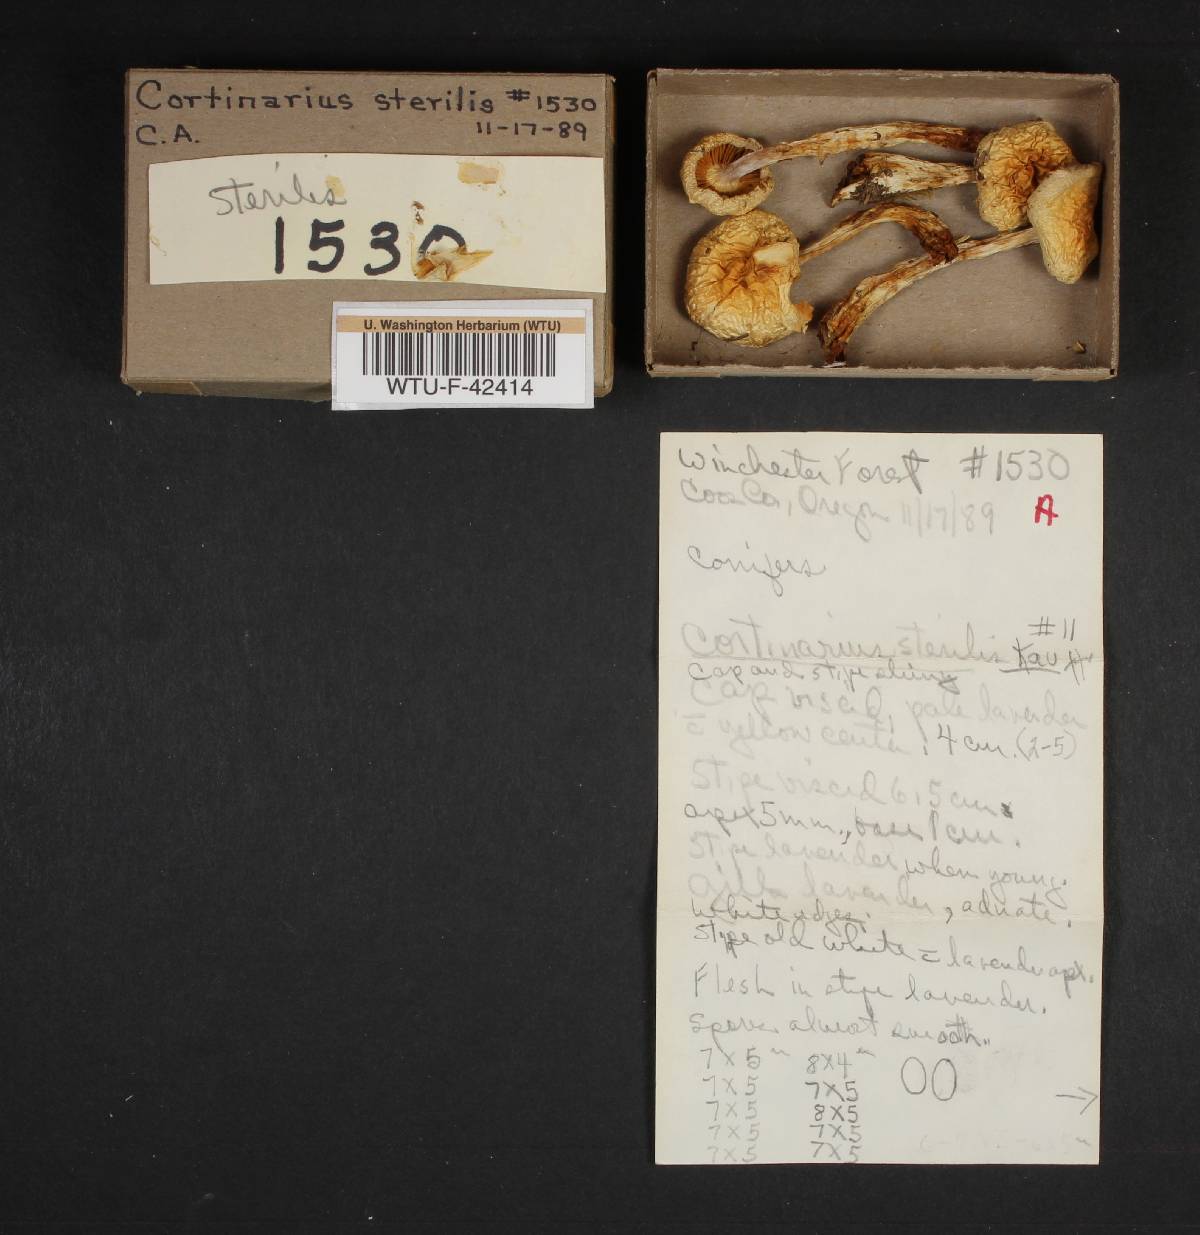 Cortinarius sterilis #1530
C.A. 11-17-89
sterilis
1530
U. Washington Herbarium (WTU)
WTU-F-42414
Winchester Forest #1530
Coos Co., Oregon 11/17/89 A
Conifers
#11
Cortinarius sterilis Kauff
Cap and stipe slimy
Cap viscid, pale lavender
c̄ yellow center. 4 cm. (2-5)
Stipe viscid 6.5 cm
apex 5 mm., base 1 cm.
Stipe lavender when young.
Gills lavender, adnate.
White edges.
Stipe old white c̄ lavender apex.
Flesh in stipe lavender.
Spores almost smooth.
7x5 8x4
7x5 7x5
7x5 8x5
7x5 7x5
7x5 7x5
→